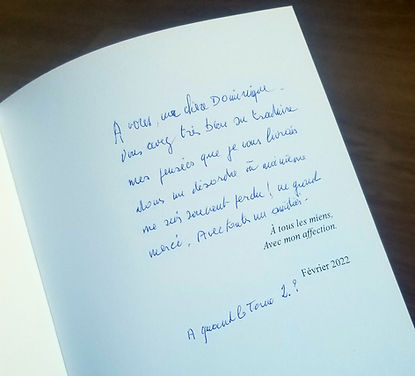 A vous, ma chère Dominique.
Vous avez très bien su traduire
mes pensées que je vous livrais
dans un désordre où moi même
me suis souvent perdu ! un grand
merci. Avec toutes mes amitiés.
À tous les miens,
Avec mon affection.
Février 2022
A quand le Tome 2 ?